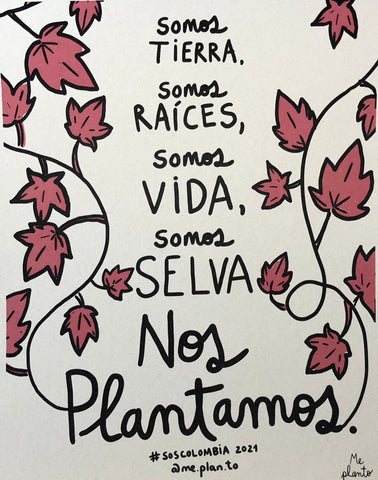 somos
TIERRA,
somos
RAÍCES,
somos
VIDA,
somos
SELVA
Nos
Plantamos.
#SOSCOLOMBIA 2021
@me.plan.to
Me
planto